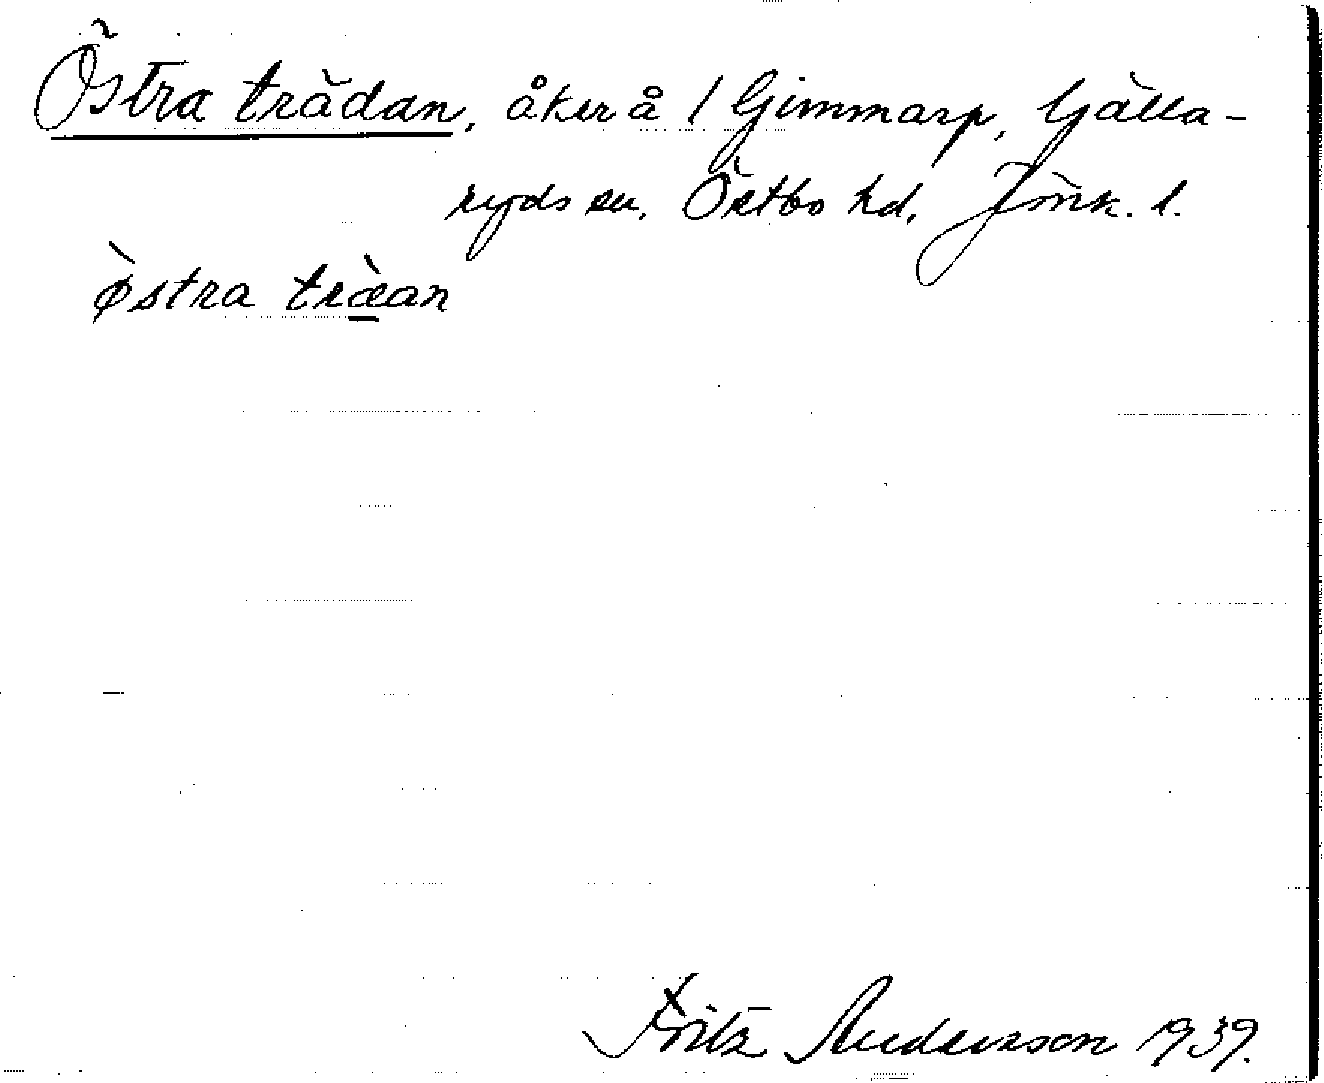 Östra trädan, åker å / Gimmarp, Gälla-
ryds sn. Östbo hd. Jönk. l.
østra træan
Fritz Andersson 1939.